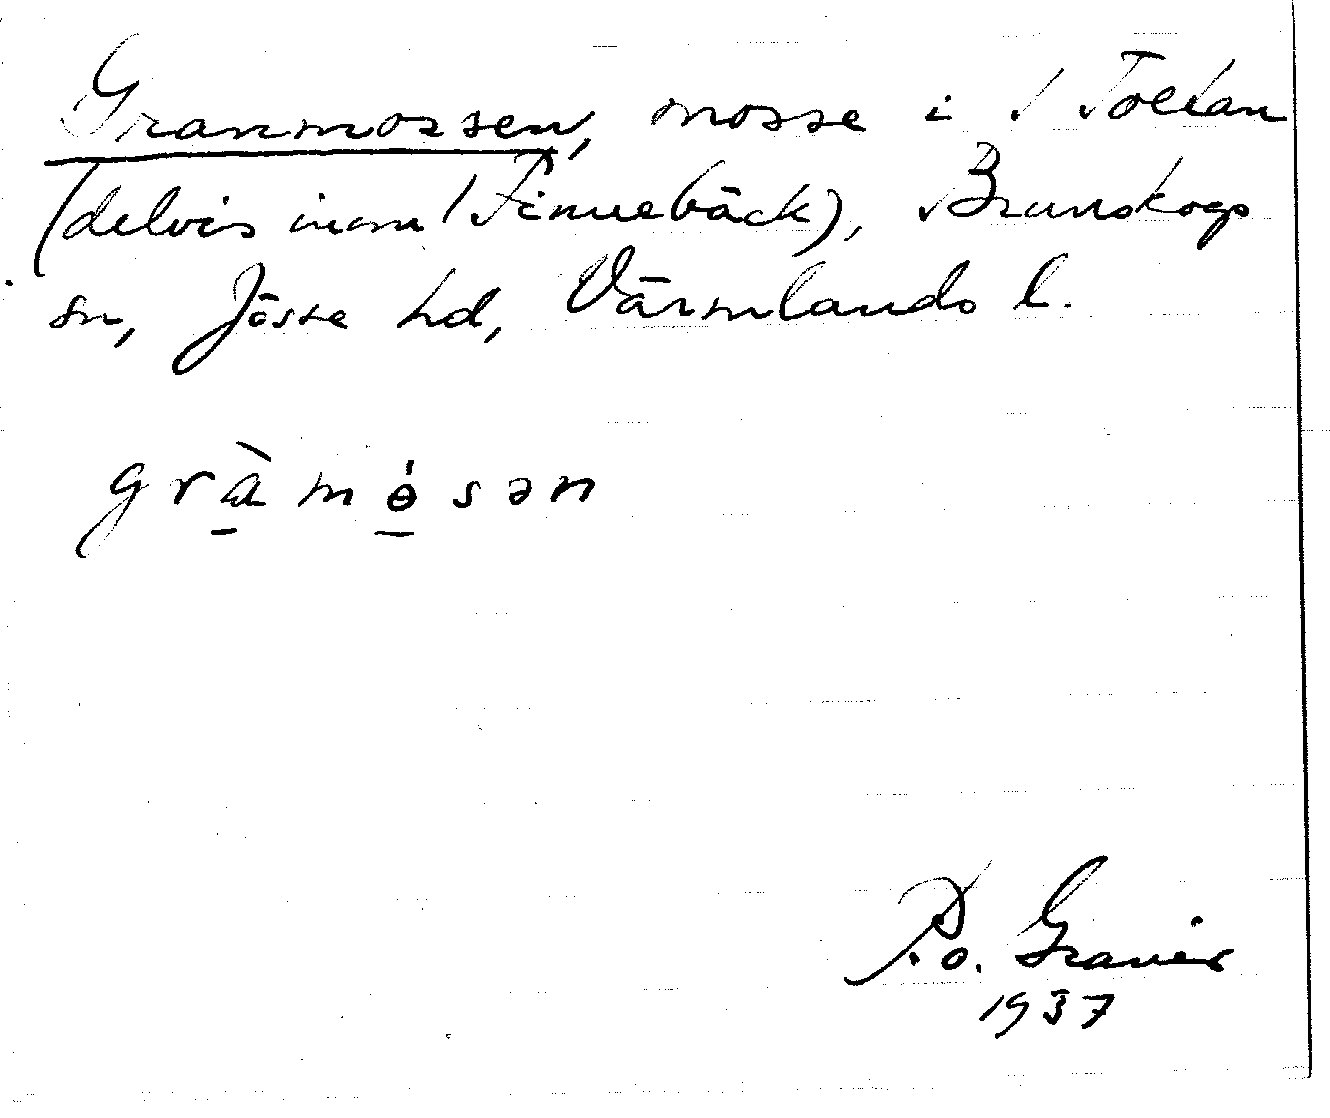 Granmossen, mosse i / Tolkan
(delvis inom / Finnebäck), Brunskogs
sn, Jösse hd, Värmlands l.
gràmɵ́sən
P.o. Granér
1937